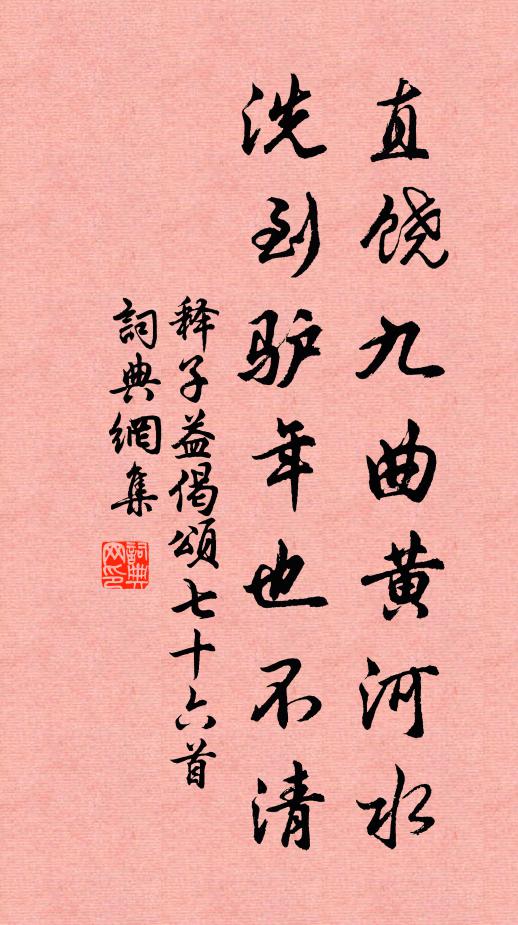 直饶九曲黄河水
洗到驴年也不清
释子益偈頌七十六首
詞典網集
詞典
网印